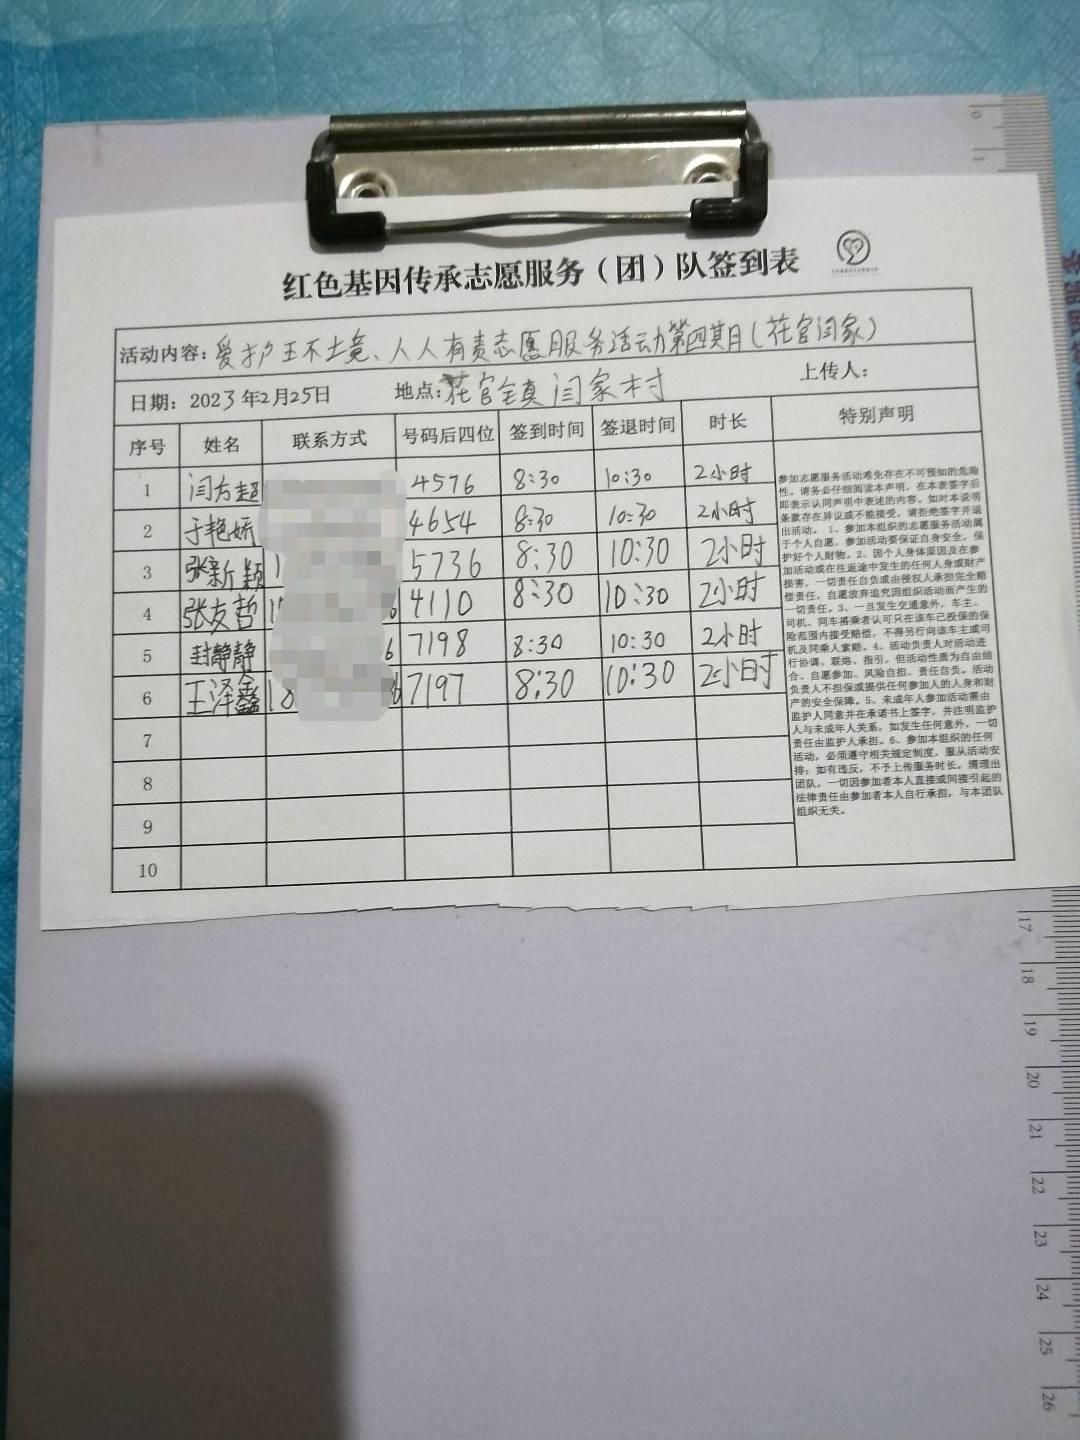 红色基因传承志愿服务（团）队签到表
活动内容：爱护环境、人人有责志愿服务活动第四期（花官闫家）
日期：2023年2月25日 地点：花官镇闫家村 上传人：
序号 姓名 联系方式 号码后四位 签到时间 签退时间 时长 特别声明
1 闫方超 4576 8:30 10:30 2小时
2 于艳娇 4654 8:30 10:30 2小时
3 张新颖 1 5736 8:30 10:30 2小时
4 张友哲 4110 8:30 10:30 2小时
5 封静静 6 7198 8:30 10:30 2小时
6 王泽鑫 18 7197 8:30 10:30 2小时
7
8
9
10
参加志愿服务活动难免存在不可预知的危险
性。请务必仔细阅读本声明，在本表签字后
即表示认同声明中表述的内容。如对本说明
条款存在异议或不能接受，请拒绝签字并退
出活动。1、参加本组织的志愿服务活动属
于个人自愿，参加活动要保证自身安全，保
护好个人财物。2、因个人身体原因及在参
加活动或在往返途中发生的任何人身或财产
损害，一切责任自负或由侵权人承担完全赔
偿责任，自愿放弃追究因组织活动而产生的
一切责任。3、一旦发生交通意外，车主、
司机、同车搭乘者认可只在该车已投保的保
险范围内接受赔偿，不得另行向该车主或司
机及同乘人索赔。4、活动负责人对活动进
行协调、联络、指引，但活动性质为自由结
合、自愿参加、风险自担、责任自负。活动
负责人不担保或提供任何参加人的人身和财
产的安全保障。5、未成年人参加活动需由
监护人同意并在承诺书上签字，并注明监护
人与未成年人关系。如发生任何意外，一切
责任由监护人承担。6、参加本组织的任何
活动，必须遵守相关规定制度，服从活动安
排；如有违反，不予上传服务时长。清理出
团队，一切因参加者本人直接或间接引起的
法律责任由参加者本人自行承担，与本团队
组织无关。
0
1
17
18
19
20
21
22
23
24
25
26